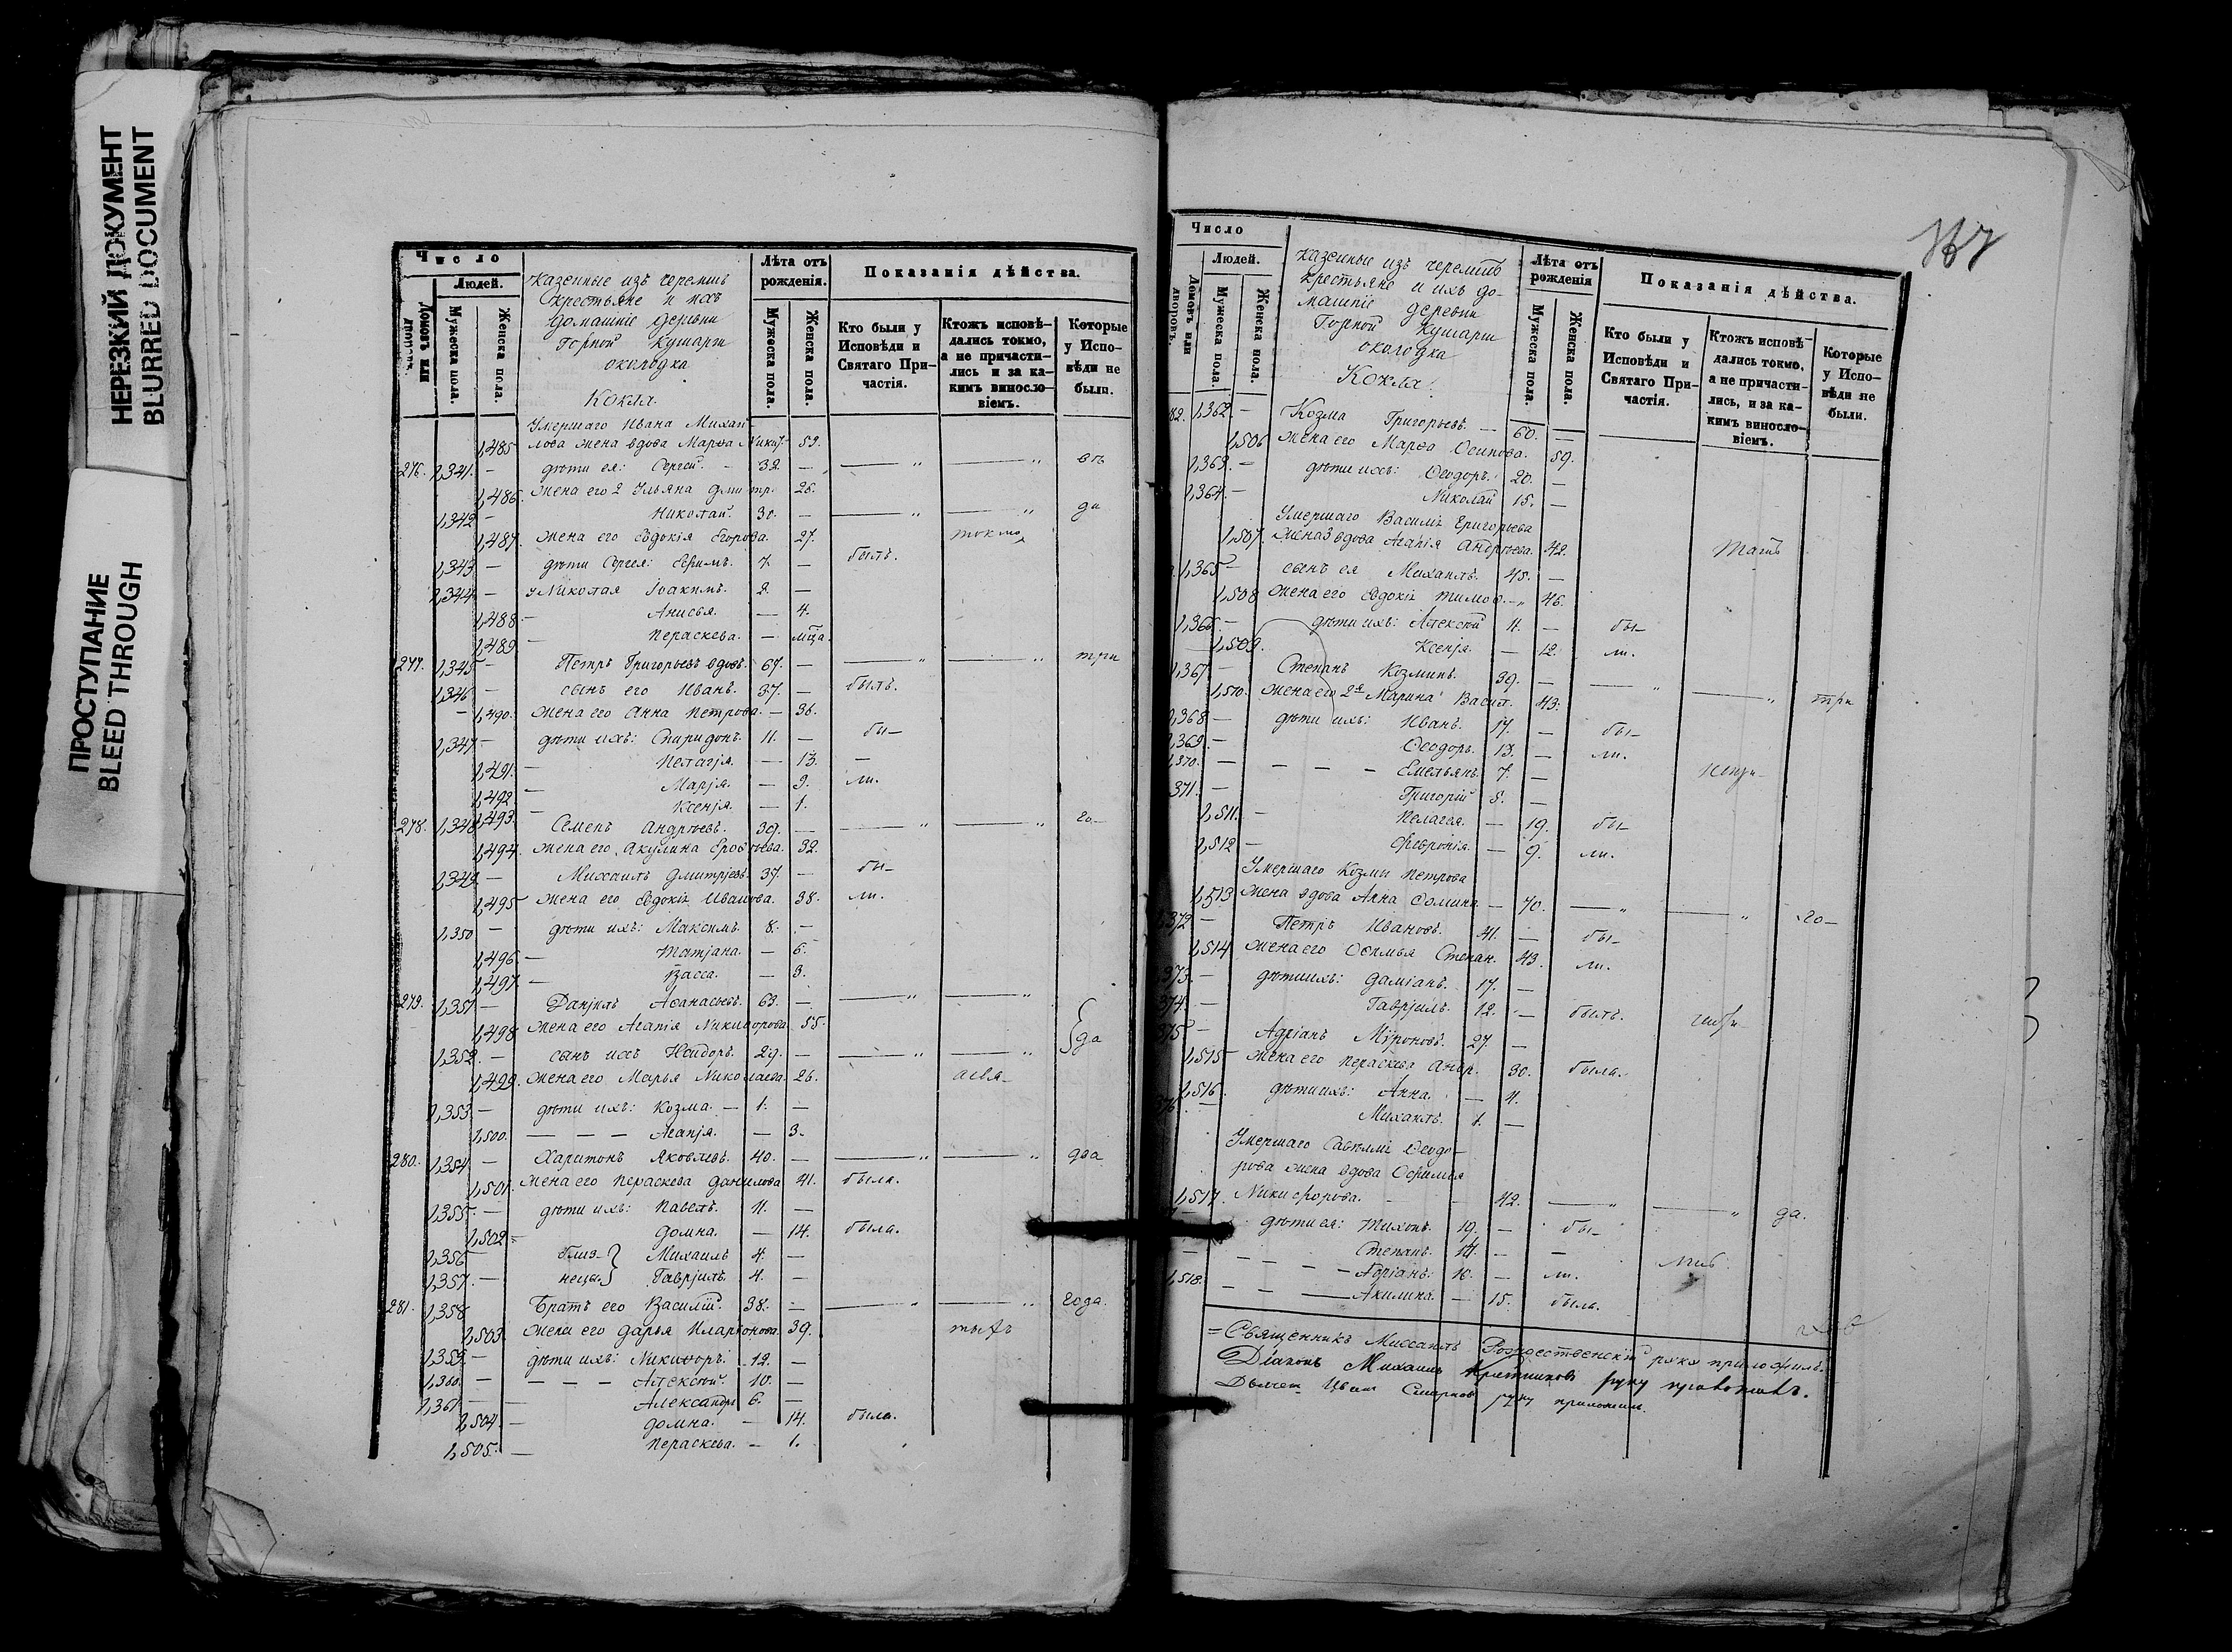 НЕРЕЗКИЙ ДОКУМЕНТ
BLURRED DOCUMENT
ПРОСТУПАНИЕ
BLEED THROUGH
Число
Людей.
Домовъ или дворовъ.
Мужеска пола.
Женска пола.
Казенные изъ черемисъ
крестьяне и ихъ
домашніе деревни
Горной Кушерги
околодка
Кокла.
Лѣта отъ рожденія.
Мужеска пола.
Женска пола.
Показанія дѣйства.
Кто были у Исповѣди и Святаго Причастія.
Ктожъ исповѣдались токмо, а не причастились и за какимъ винословіемъ.
Которые у Исповѣди не были.
Умершаго Ивана Михай-
1,485 лова жена вдова Марѳа Никит. 59.
276. 1,341. — дѣти ея: Сергей. — 32. —
1,486. жена его 2 Ульяна Дмитр. 26.
1,342 — Николай. 30. —
1,487. жена его Евдокія Егорова. 27. токмо
1,343 — дѣти Сергея: Ефимъ. 7. — былъ.
1,344 — Николая Іоакимъ. 2. —
1,488 — Анисья. — 4.
1,489 — Параскева. — мѣца.
277. 1,345 — Петръ Григорьевъ вдовъ. 67. — три
1,346 — сынъ его Иванъ. 37. — былъ.
1,490. жена его Анна Петрова. — 36.
1,347 — дѣти ихъ: Спиридонъ. 11. — бы-
1,491. — Пелагія. — 13. —
1,492 — Марія. — 9. ли.
1,493. — Ксенія. — 1.
278. 1,348 Семенъ Андреевъ. 39. — го-
1,494. жена его Акулина 32.
1,349 — Михаилъ Дмитріевъ 37. — бы-
1,495 жена его Евдокія Иванова. 38. ли.
1,350 — дѣти ихъ: Максимъ. 8. —
1,496. — Татіана. — 6.
1,497. — Васса. — 3.
279. 1,351 — Даніилъ Аѳанасьевъ. 63. —
1,498 жена его Агапія Никиѳорова 55. да
1,352. — сынъ ихъ Исидоръ. 29. —
1,499. жена его Марья Николаева. 26.
1,353. — дѣти ихъ: Козма. — 1. —
1,500. — — — Агапія. — 3.
280. 1,354 — Харитонъ Яковлевъ. 40. — два
1,501. жена его Параскева Данилова 41. была.
1,355. — дѣти ихъ: Павелъ. 11. —
1,502 Домна. — 14. была.
1,356 близ- Михаилъ 4. —
1,357. — нецы Гавріилъ. 4. —
281. 1,358 Братъ его Василій. 38. — года.
1,503. жена его Дарья Иларіонова. 39.
1,359. — дѣти ихъ: Никиѳоръ. 12. —
1,360. — — — — Алексѣй. 10. —
1,361 — — Александръ 6. —
1,504. — Домна. — 14. была.
1,505. — Параскева. — 1.
Число
Людей.
Домовъ или дворовъ.
Мужеска пола.
Женска пола.
Казенные изъ черемисъ
крестьяне и ихъ до-
машніе деревни
Горной Кушерги
околодка
Кокла.
Лѣта отъ рожденія
Мужеска пола.
Женска пола.
Показанія дѣйства.
Кто были у Исповѣди и Святаго Причастія.
Ктожъ исповѣдались токмо, а не причастились, и за какимъ винословіемъ.
Которые у Исповѣди не были.
82. 1,362. — Козма Григорьевъ. — 60. —
1,506 жена его Марѳа Осипова. 59.
1,363. — дѣти ихъ: Ѳеодоръ. 20. —
1,364. — Николай 15. —
Умершаго Василія Григорьева
1,507. жена 3 вдова Агапія Андреева. 42.
1,365 — сынъ ея Михаилъ. 45. —
1,508 жена его Евдокія Тимоѳ. 46.
1,366. — дѣти ихъ: Алексѣй 11. — бы-
1,509. Ксенія. — 12. ли.
1,367 — Степанъ Козминъ. 39. —
1,510. жена его 2я Марина Васил. 43. три
1,368 — дѣти ихъ: Иванъ. 17. — бы-
1,369. — Ѳеодоръ. 13. — ли.
1,370. — — — — Емельянъ. 7. —
371. — Григорій 5. —
1,511. — Пелагея. — 19. бы-
1,512 — Февронія. — 9. ли.
Умершаго Козмы Петрова
1,513 жена вдова Анна Ѳомина. — 70. го-
372 — Петръ Ивановъ. 41. — бы-
1,514 жена его Степан. 43. ли.
373. — дѣти ихъ: Даміанъ. 17. —
374. — Гавріилъ. 12. — былъ.
375 — Адріанъ Мѵроновъ. 27. —
1,515 жена его Параскева Андр. 30. была.
1,516. дѣти ихъ: Анна. — 4.
— Михаилъ. 1. —
Умершаго Савелія Ѳеодо-
рова жена вдова
1,517 Никифорова. — 42. да.
дѣти ея: Тихонъ. 19. — бы-
— Степанъ. 14. — —
— — — — Адріанъ. 16. — ли.
1,518. — — Акилина. — 15. была.
Священникъ Мисаилъ Рождественскій руку приложилъ.
Діаконъ Михаилъ руку приложилъ.
Дьячекъ Иванъ Смирновъ руку приложилъ.